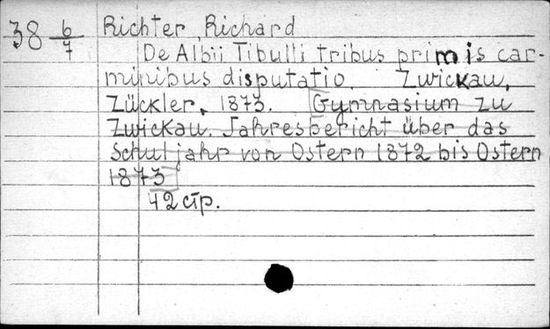 38 6/7 Richter, Richard
De Albii Tibulli tribus primis car-
minibus disputatio. Zwickau,
Zückler, 1873. [Gymnasium zu
Zwickau. Jahresbericht über das
Schuljahr von Ostern 1872 bis Ostern
1873]
42 стр.